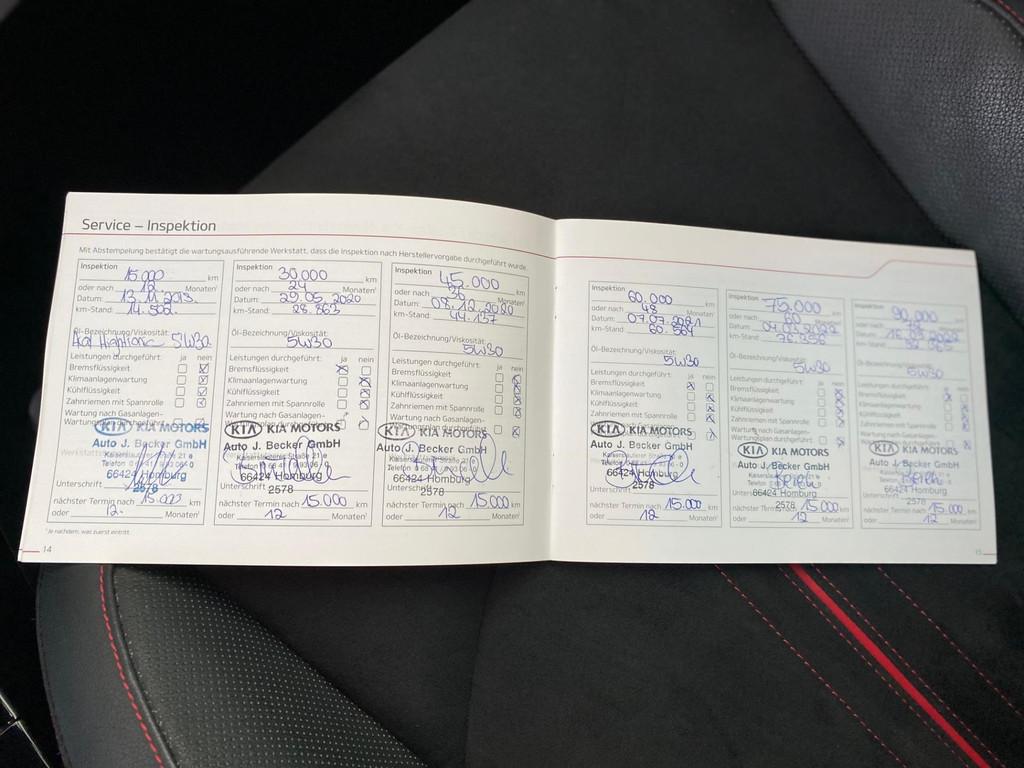 Service – Inspektion
Mit Abstempelung bestätigt die wartungsausführende Werkstatt, dass die Inspektion nach Herstellervorgabe durchgeführt wurde.
Inspektion 15.000 km
oder nach 12 Monaten¹
Datum: 13.11.
km-Stand: 14.
Öl-Bezeichnung/Viskosität:
5W30
Leistungen durchgeführt: ja nein
Bremsflüssigkeit
Klimaanlagenwartung
Kühlflüssigkeit
Zahnriemen mit Spannrolle
Wartung nach Gasanlagen-
KIA KIA MOTORS
Auto J. Becker GmbH
66424 Homburg
2578
Unterschrift
nächster Termin nach 15.000 km
oder 12 Monaten¹
¹ Je nachdem, was zuerst eintritt.
14
Inspektion 30.000 km
oder nach 24 Monaten¹
Datum: 29.05.2020
km-Stand: 28.863
Öl-Bezeichnung/Viskosität:
5W30
Leistungen durchgeführt: ja nein
Bremsflüssigkeit
Klimaanlagenwartung
Kühlflüssigkeit
Zahnriemen mit Spannrolle
Wartung nach Gasanlagen-
KIA KIA MOTORS
Auto J. Becker GmbH
66424 Homburg
2578
Unterschrift
nächster Termin nach 15.000 km
oder 12 Monaten¹
Inspektion 45.000 km
oder nach 36 Monaten¹
Datum: 08.12.2020
km-Stand: 44.137
Öl-Bezeichnung/Viskosität:
5W30
Leistungen durchgeführt: ja nein
Bremsflüssigkeit
Klimaanlagenwartung
Kühlflüssigkeit
Zahnriemen mit Spannrolle
Wartung nach Gasanlagen-
KIA KIA MOTORS
Auto J. Becker GmbH
66424 Homburg
2578
Unterschrift
nächster Termin nach 15.000 km
oder 12 Monaten¹
Inspektion 60.000 km
oder nach 48 Monaten¹
Datum: 07.07.2021
km-Stand: 60.564
Öl-Bezeichnung/Viskosität:
5W30
Leistungen durchgeführt: ja nein
Bremsflüssigkeit
Klimaanlagenwartung
Kühlflüssigkeit
Zahnriemen mit Spannrolle
Wartung nach Gasanlagen-
KIA KIA MOTORS
Auto J. Becker GmbH
66424 Homburg
2578
Unterschrift
nächster Termin nach 15.000 km
oder 12 Monaten¹
Inspektion 75.000 km
oder nach 60 Monaten¹
Datum
km-Stand: 76.256
Öl-Bezeichnung/Viskosität:
5W30
Leistungen durchgeführt: ja nein
Bremsflüssigkeit
Klimaanlagenwartung
Kühlflüssigkeit
Zahnriemen mit Spannrolle
Wartung nach Gasanlagen-
Wartungsplan durchgeführt:
KIA KIA MOTORS
Auto J. Becker GmbH
66424 Homburg
2578
Unterschrift
nächster Termin nach 15.000 km
oder 12 Monaten¹
Inspektion 90.000 km
oder nach Monaten¹
Datum
km-Stand:
Öl-Bezeichnung/Viskosität:
5W30
Leistungen durchgeführt: ja nein
Bremsflüssigkeit
Klimaanlagenwartung
Kühlflüssigkeit
Zahnriemen mit Spannrolle
Wartung nach Gasanlagen-
KIA KIA MOTORS
Auto J. Becker GmbH
66424 Homburg
2578
Unterschrift
nächster Termin nach 15.000 km
oder 12 Monaten¹
15